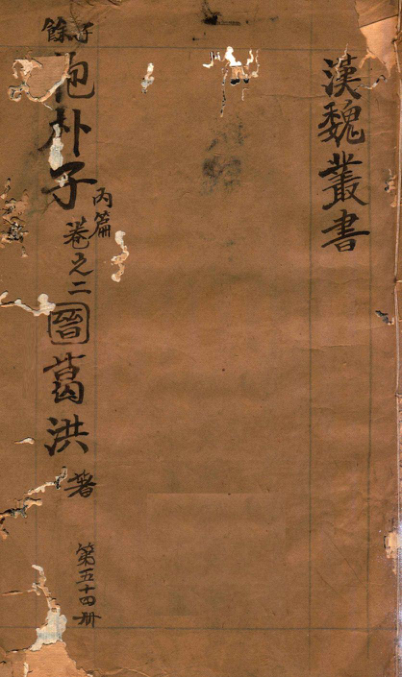 漢魏叢書
子餘
抱朴子
丙篇
卷之二
晉
葛洪
著
第五十四册